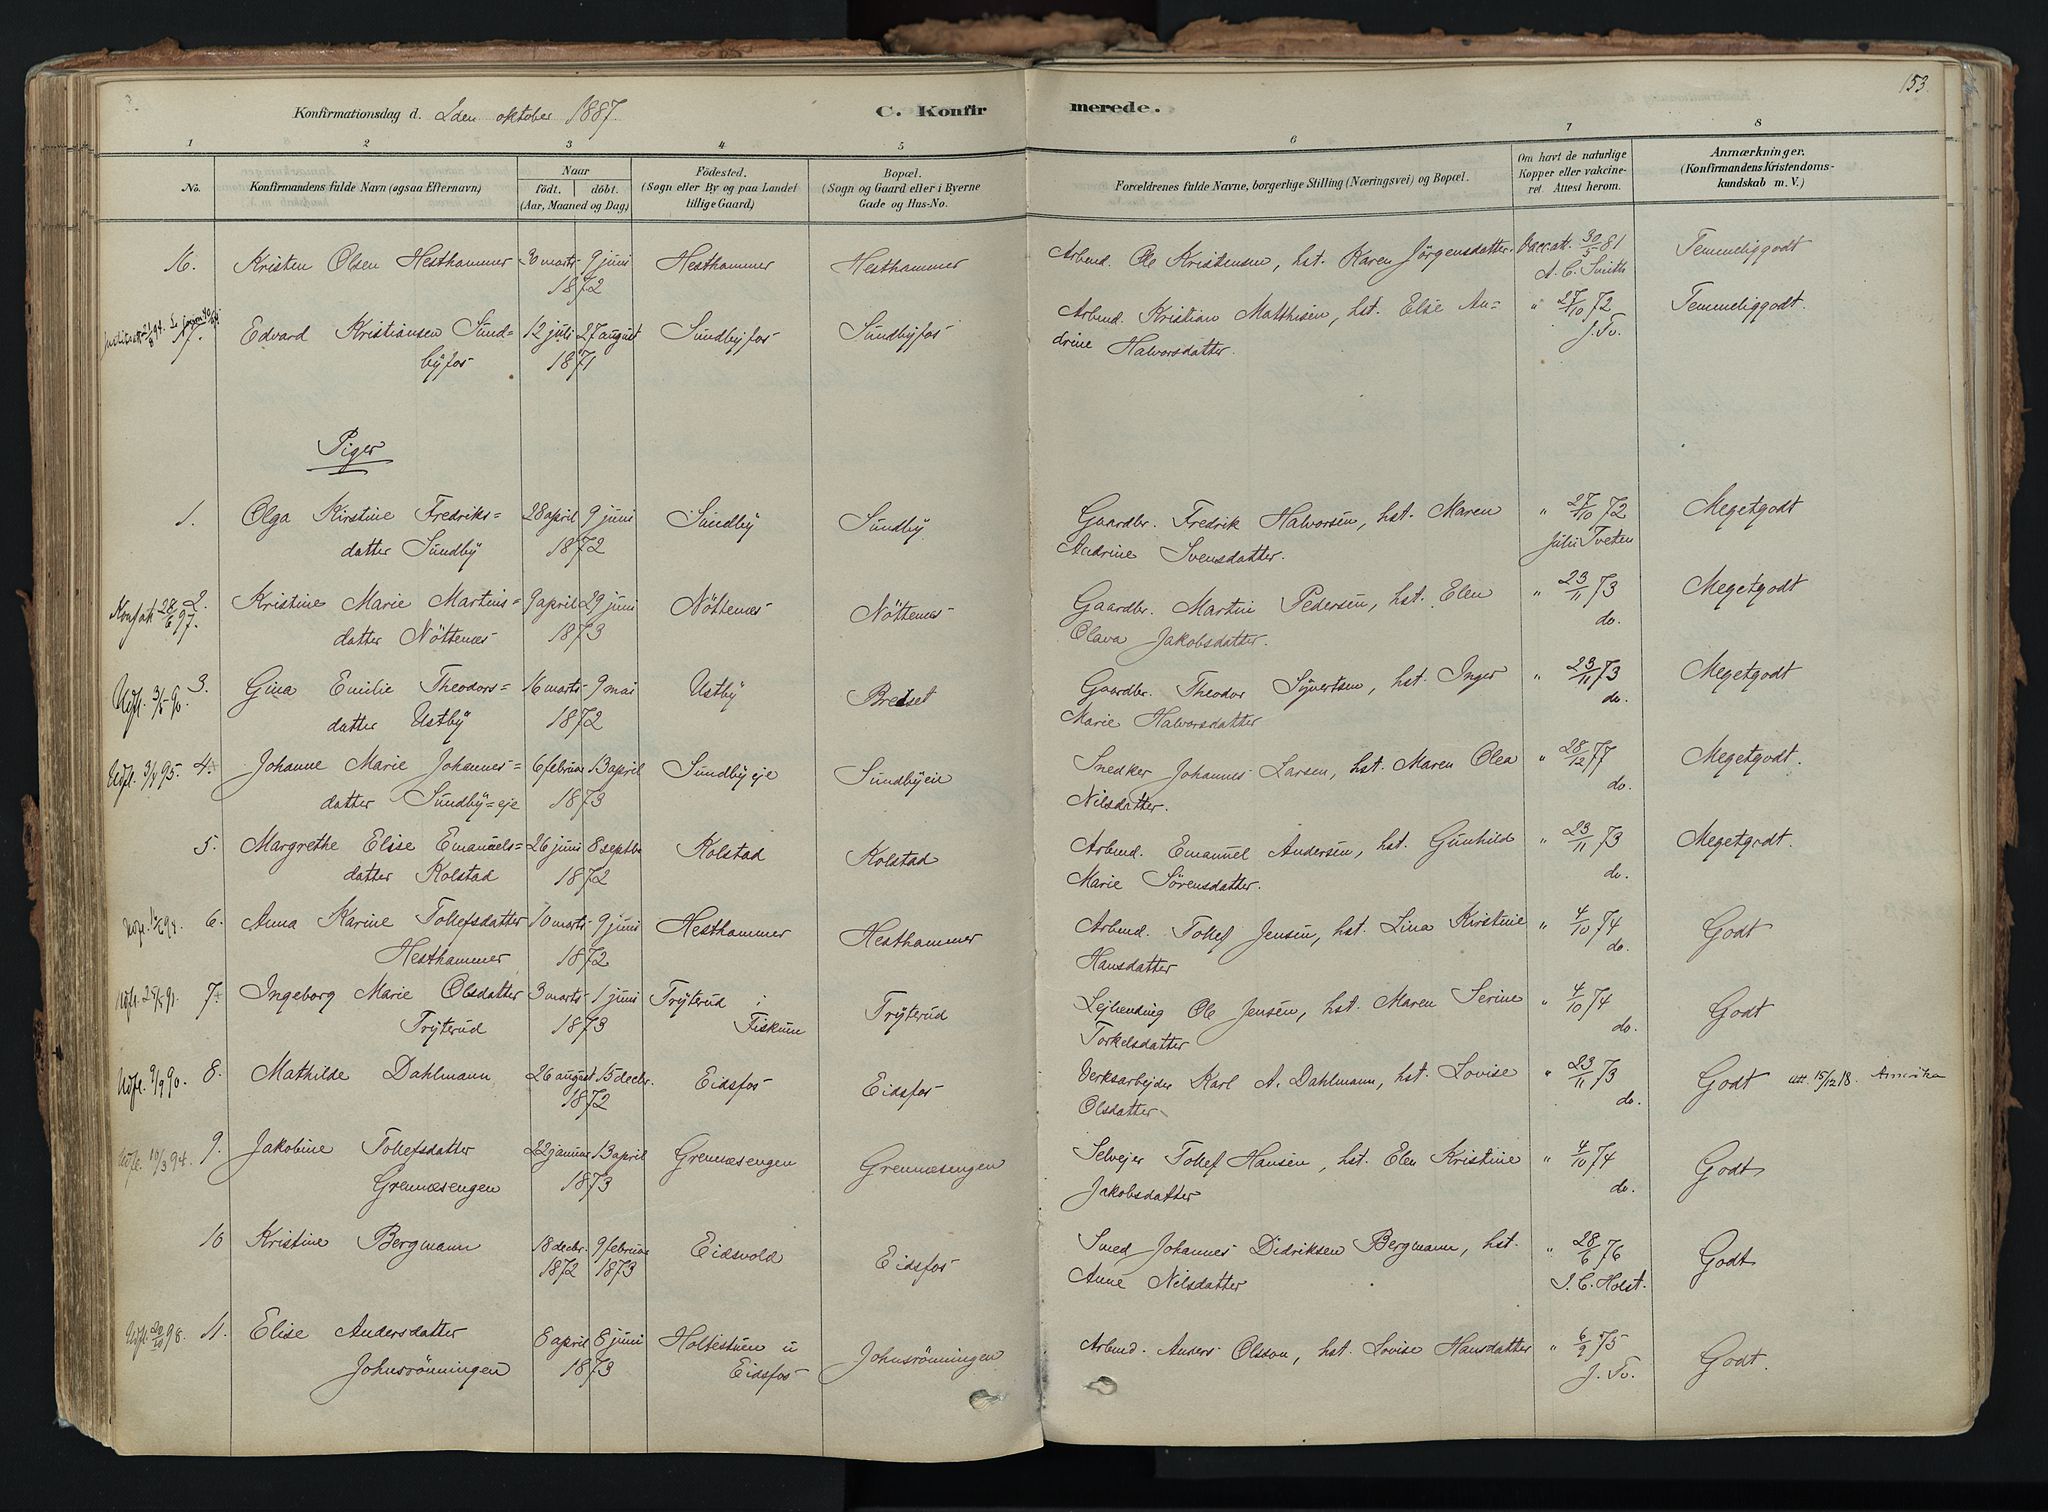 153.
Konfirmationsdag d. 2den oktober 1887
C. Konfirmerede.
1 2 3 4 5 6 7 8
No.
Konfirmandens fulde Navn (ogsaa Efternavn)
Naar
födt. döbt.
(Aar, Maaned og Dag)
Födested.
(Sogn eller By og paa Landet
tillige Gaard)
Bopæl.
(Sogn og Gaard eller i Byerne
Gade og Hus-No.
Forældrenes fulde Navne, borgerlige Stilling (Næringsvei) og Bopæl.
Om havt de naturlige
Kopper eller vakcine-
ret Attest herom.
Anmærkninger.
(Konfirmandens Kristendoms-
kundskab m. V.)
16. Kristen Olsen Hesthammer 30 marts 9 juni Hesthammer Hesthammer Arbmd. Ole Kristensen, hst. Karen Jörgensdatter. Vacc.att. 30/5 81 Temmeliggodt
1872 A. C. Smith
17. Edvard Kristiansen Sund- 12 juli 27 august Sundbyfos Sundbyfos Arbmd. Kristian Matthisen, hst. Else An- " 27/10 72 Temmeliggodt.
byfos 1871 drine Halvorsdatter. J. Tv.
Piger
1. Olga Kirstine Fredriks- 28 april 9 juni Sundby Sundby Gaardbr. Fredrik Halvorsen, hst. Maren " 27/10 72 Megetgodt
datter Sundby 1872 Andrine Svensdatter. Julii Tveten
Konfatt 28/6 97. 2. Kristine Marie Martins- 9 april 29 juni Nöttenæs Nöttenæs Gaardbr. Martin Pedersen, hst. Elen " 23/11 73 Megetgodt
datter Nöttenæs 1873 Olava Jakobsdatter. do.
Udfl. 3/5 90. 3. Gina Emilie Theodors- 16 marts 9 mai Ustby Bredset Gaardbr. Theodor Syvertsen, hst. Inger " 23/11 73 Megetgodt
datter Ustby 1872 Marie Halvorsdatter do.
Udfl. 95. 4. Johanne Marie Johannes- 6 februar 13 april Sundbyeje Sundbyein Snedker Johannes Larsen, hst. Maren Olea " 28/12 77 Megetgodt.
datter Sundby=eje 1873 Nilsdatter. do.
5. Margrethe Elise Emanuels- 26 juni 8 septbr Kolstad Kolstad Arbmd. Emanuel Andersen, hst. Gunhild " 23/11 73 Megetgodt.
datter Kolstad 1872 Marie Sörensdatter. do.
Udfl. 94. 6. Anna Karine Tollefsdatter 10 marts 9 juni Hesthammer Hesthammer Arbmd. Tollef Jensen, hst. Lina Kirstine " 4/10 74 Godt
Hesthammer 1872 Hansdatter do.
Udfl. 7. Ingeborg Marie Olsdatter 3 marts 1 juni Tryterud i Tryterud Lejlending Ole Jensen, hst. Maren Serine " 4/10 74 Godt
Tryterud 1873 Fiskum Torkelsdatter do.
Udfl. 9/9 90. 8. Mathilde Dahlmann 26 august 15 decbr. Eidsfos Eidsfos Verksarbejder Karl A. Dahlmann, hst. Lovise " 23/11 73 Godt att. 15/12 18. Amerika
1872 Olsdatter do.
Udfl. 10/3 94. 9. Jakobine Tollefsdatter 22 januar 13 april Grennæsengen Grennæsengen Selvejer Tollef Hansen, hst. Elen Kristine " 4/10 74 Godt
Grennæsengen 1873 Jakobsdatter do.
10 Kristine Bergmann 18 decbr. 9 februar Eidsvold Eidsfos Smed Johannes Didriksen Bergmann, hst. " 28/6 76 Godt
1872 1873 Anne Nilsdatter J. C. Holst.
Udfl. 20/10 98. 11. Elise Andersdatter 8 april 8 juni Holtestuen u Johnsrönningen Arbmd. Anders Olsson, hst. Lovise Hansdatter " 6/9 75 Godt.
Johnsrönningen 1873 Eidsfos J. Tv.